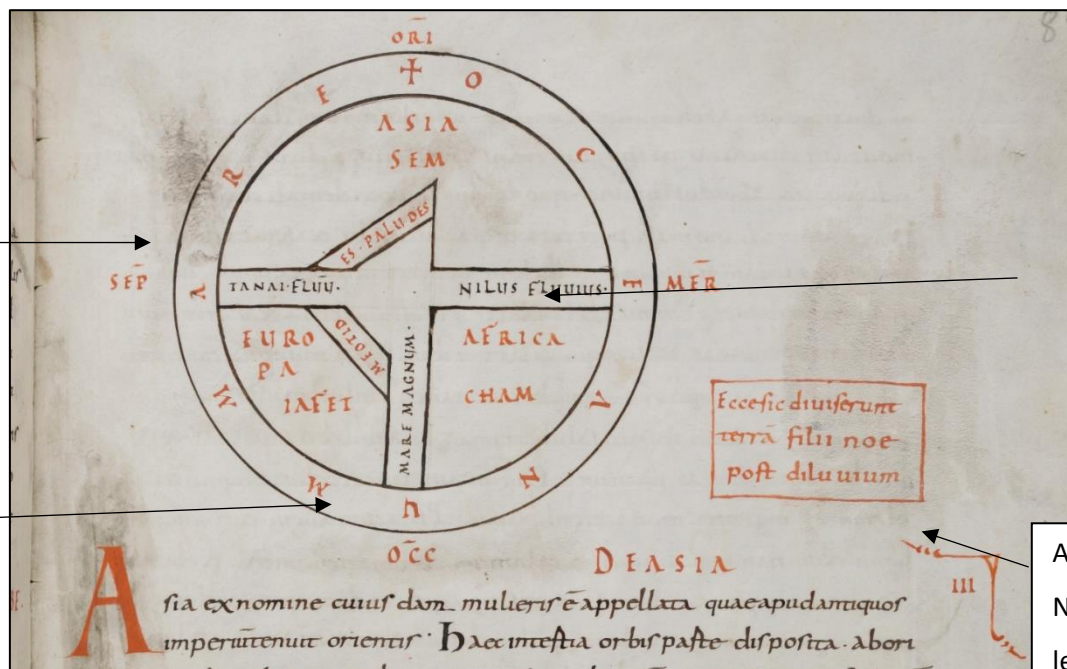 8
ORI
MARE OCEANUM
ASIA
SEM
ES·PALUDES
SEP
TANAI·FLUU·
NILUS FLUUIUS·
MER
EURO
PA
IAFET
MEOTID
MARE MAGNUM·
AFRICA
CHAM
Ecce sic diuiserunt
terrā filii noe
post diluuium
OCC
DE ASIA
III
Asia ex nomine cuiusdam mulieris ē appellata quae apud antiquos
imperiū tenuit orientis · Haec in tertia orbis parte disposita · abori
A
N
le